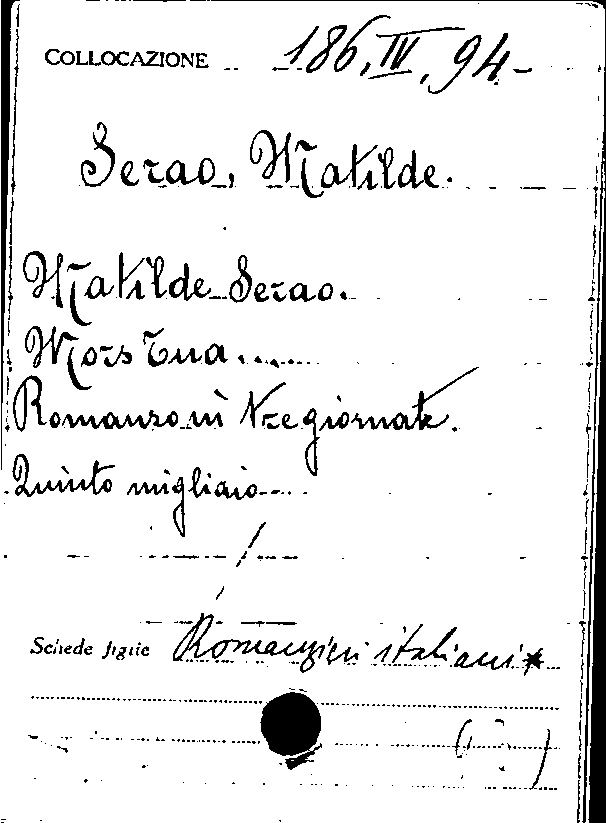 COLLOCAZIONE 186, IV, 94-
Serao, Matilde.
Matilde Serao.
Mors tua.....
Romanzo in tre giornate.
Quinto migliaio....
Schede figlie Romanzieri italiani*